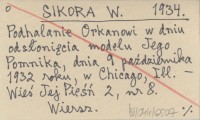 o SIKORA W. 1934.
Podhalanie Orkanowi w dniu
odsłonięcia modelu Jego
Pomnika, dnia 9 października
1932 roku, w Chicago, Ill. –
Wieś Jej Pieśń 2, nr. 8.
Wiersz.
%